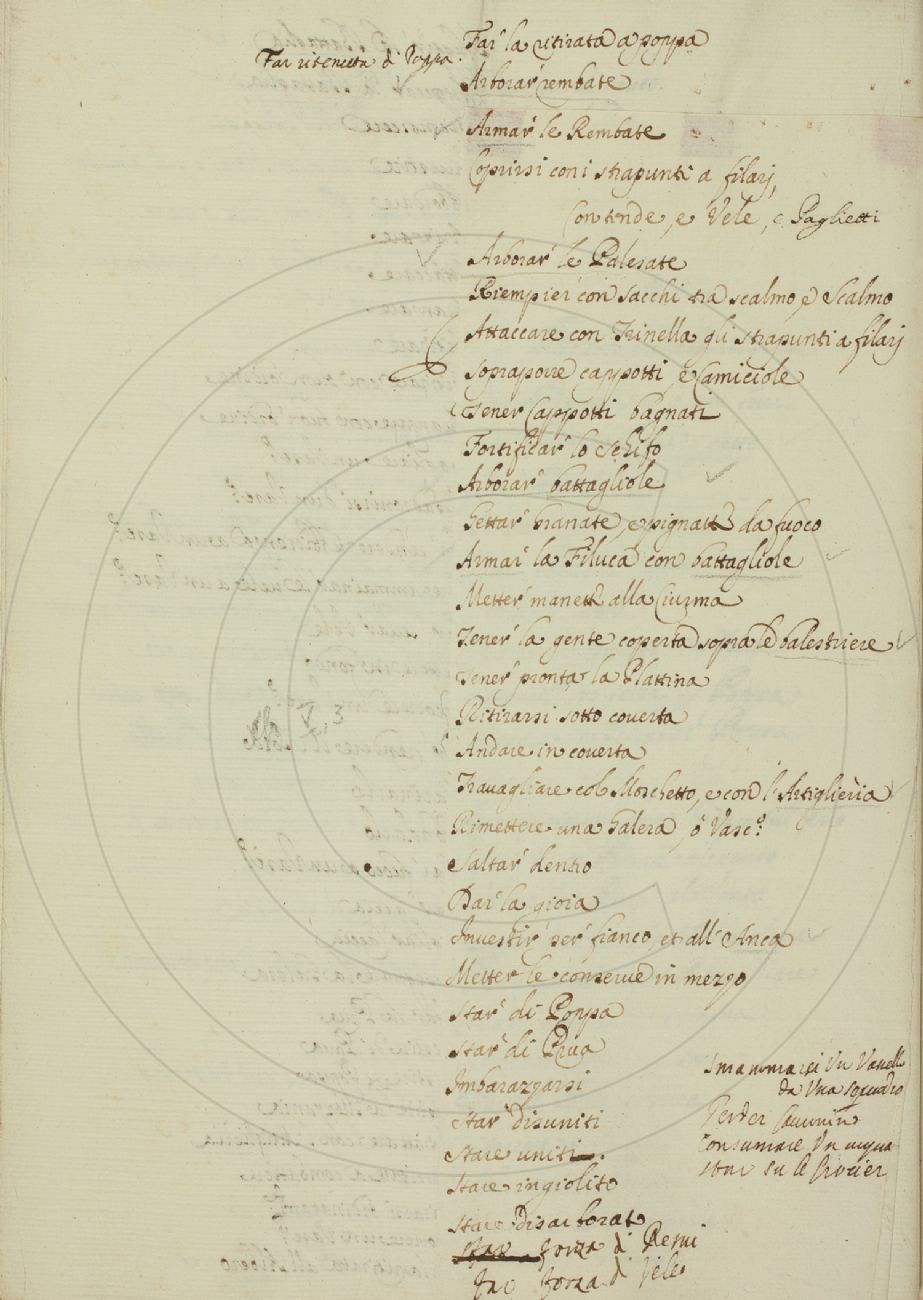 Far ritenuta di Poppa.
Far la ritirata a poppa
Arborar rembate
Armar le Rembate
Coprirsi con i strapunti a filari,
Con tende, e Vele, e Paglietti
Arborar le Palesate
Riempier con sacchi tra scalmo, e Scalmo
Attaccare con Trinella gli strapunti a filari
soprapore cappotti, e Camiciole
Tener Cappotti bagnati
Fortificar lo schifo
Arborar battagliole
Gettar Granate, e pignatte da fuoco
Armar la Filuca con battagliole
Metter manette alla Ciurma
Tener la gente coperta sopra le balestriere
Tener pronta la Plattina
Ritirarsi sotto coverta
Andare in coverta
Travagliare col Moschetto, e con l'Artiglieria
Rimettere una Galera, ò Vasc.º
Saltar dentro
Dar la gioia
Investir per fianco, et all'Anca
Metter le conserve in mezzo
Star di Poppa
Star di Prua
Imbarazzarsi
Star disuniti
Stare uniti.
Stare ingiolito
Stare Disarborato
Forza di Remi
Far Forza di Vele
Vascello
da Una squadra
Perder Cammin
Consumare Un acqua